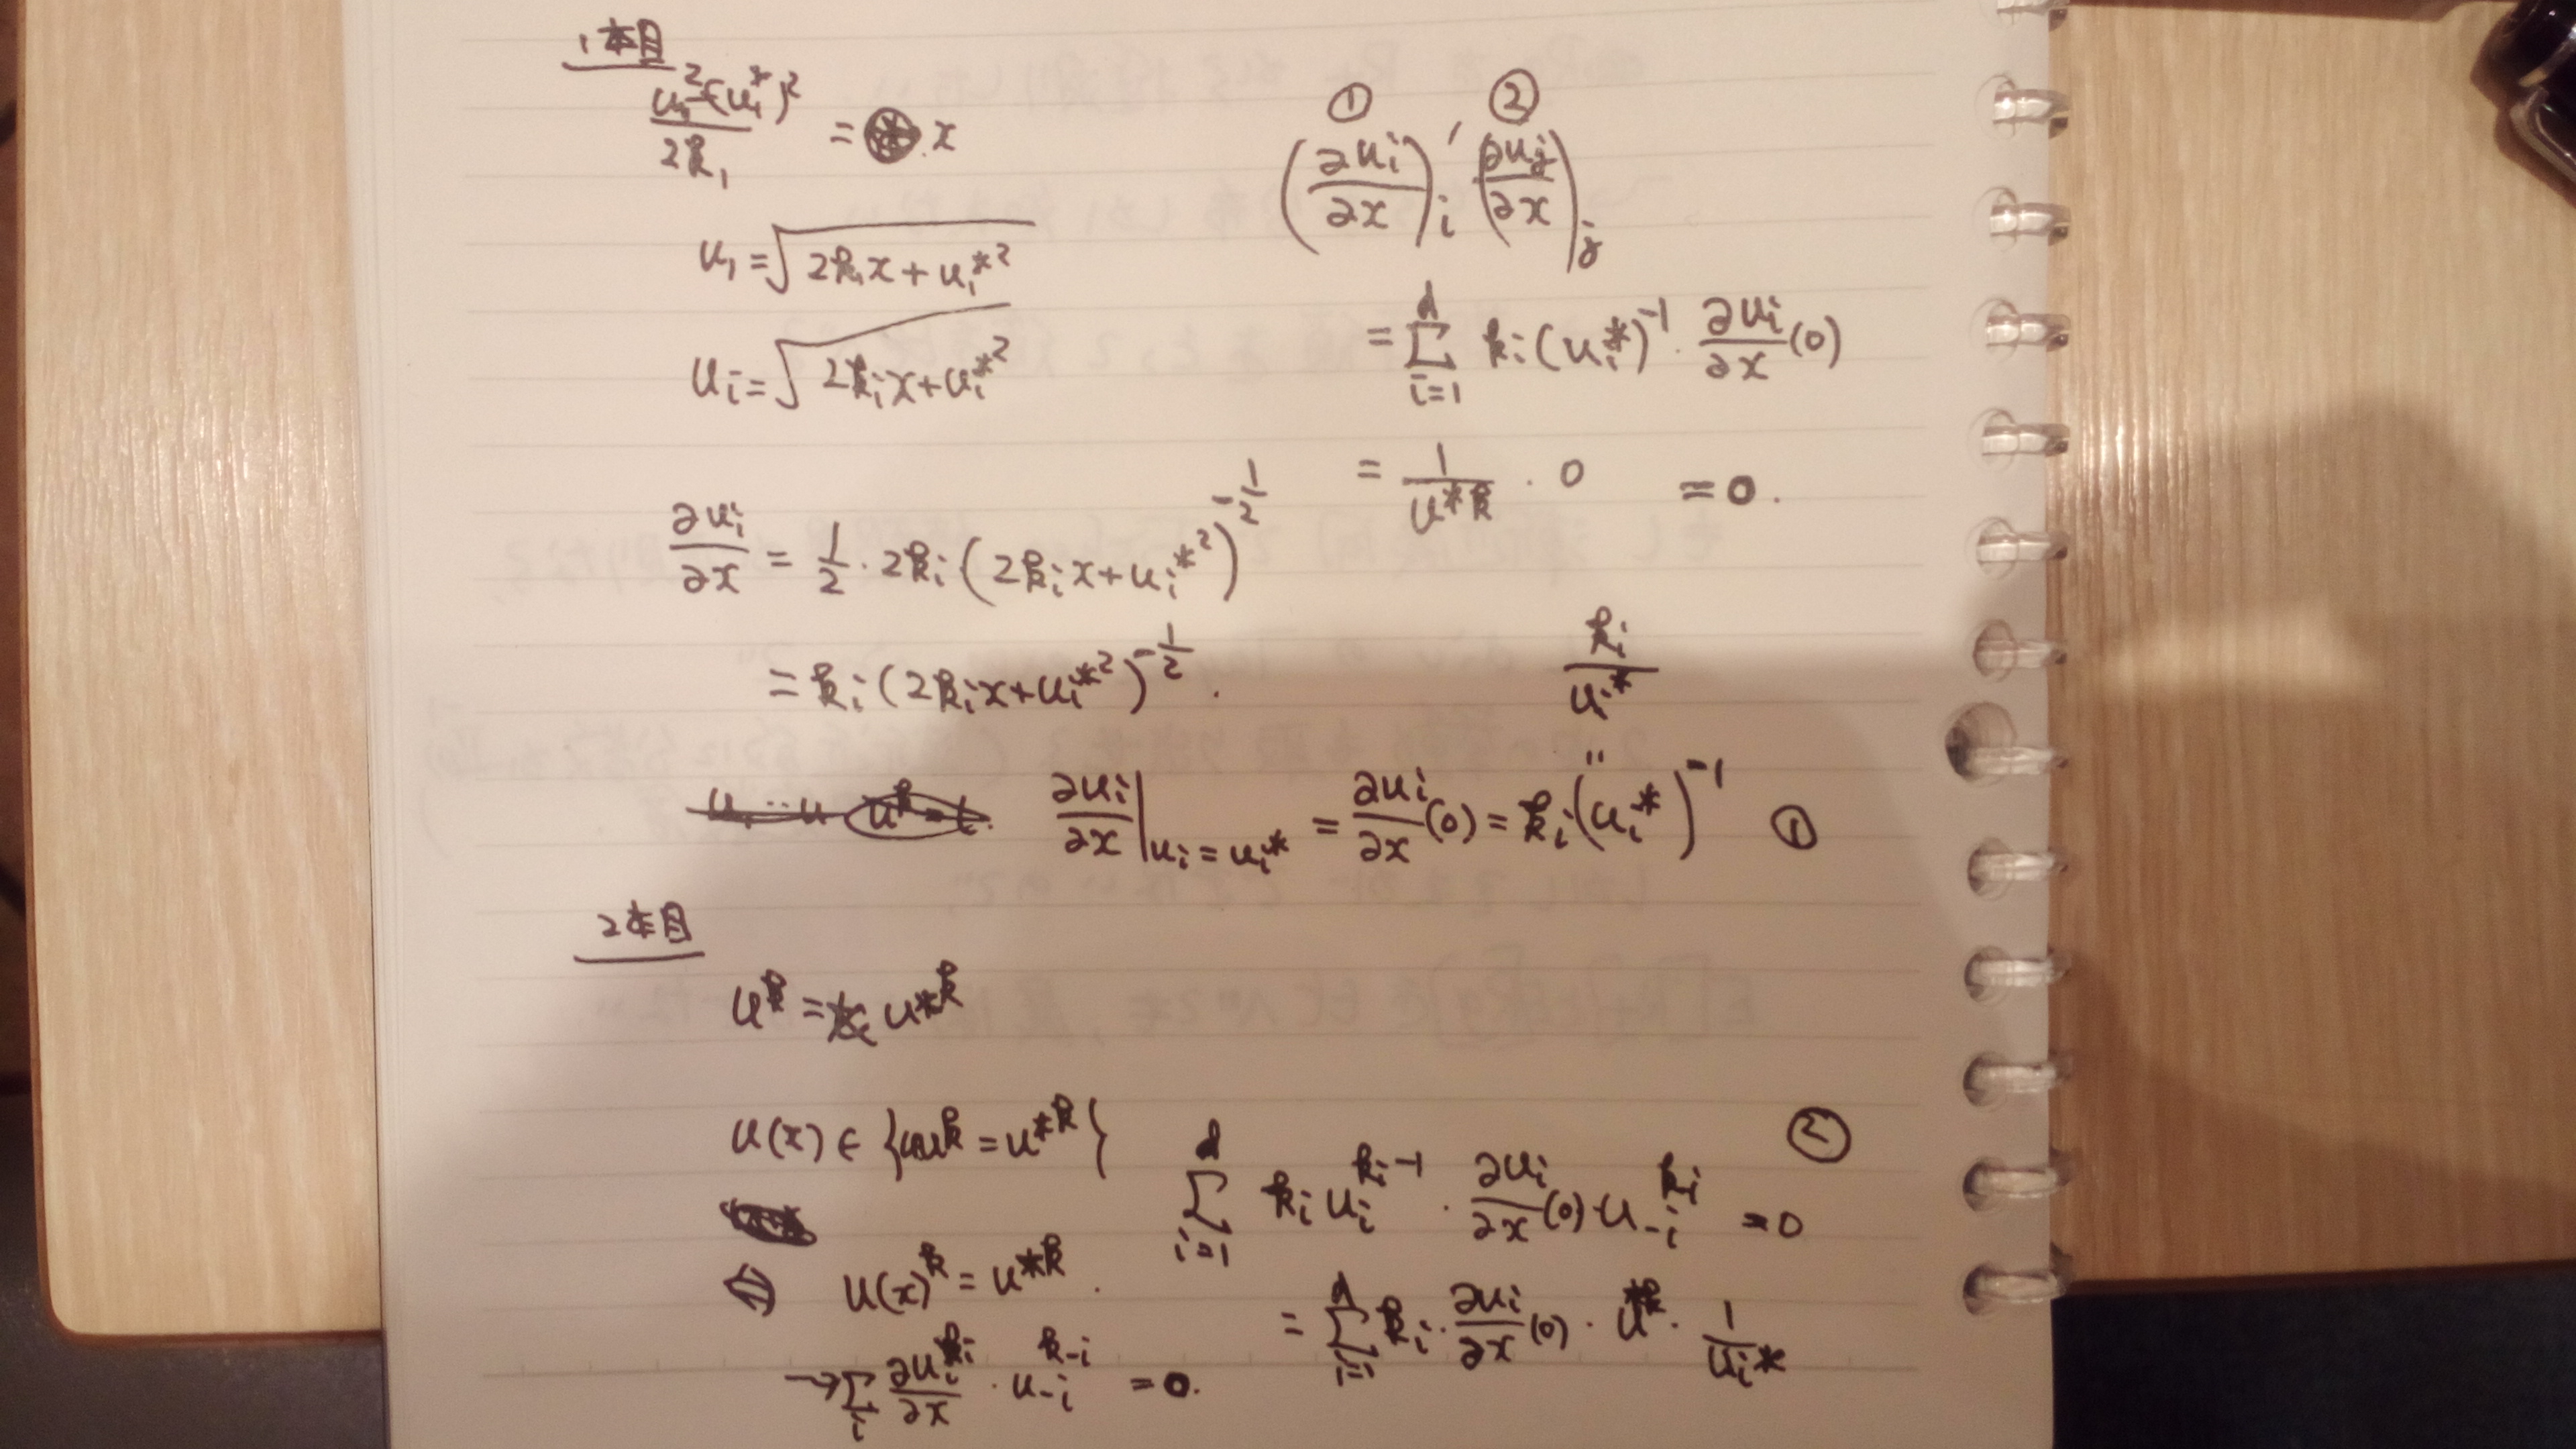 1本目
(u₁² - (u₁*)²) / 2k₁ = x
u₁ = √(2k₁x + u₁*²)
uᵢ = √(2kᵢx + uᵢ*²)
∂uᵢ/∂x = 1/2 · 2kᵢ (2kᵢx + uᵢ*²)^(-1/2)
= kᵢ (2kᵢx + uᵢ*²)^(-1/2) .
∂uᵢ/∂x |_(uᵢ = uᵢ*) = ∂uᵢ/∂x (0) = kᵢ (uᵢ*)^(-1) ①
" kᵢ / uᵢ*
① ②
(∂uᵢ/∂x)ᵢ , (∂uⱼ/∂x)ⱼ
= Σ_{i=1}^{d} kᵢ (uᵢ*)^(-1) · ∂uᵢ/∂x (0)
= 1/u*^k · 0 = 0 .
2本目
u^k = u*^k
u(x) ∈ { u | u^k = u*^k }
⇔ u(x)^k = u*^k .
→ Σᵢ ∂uᵢ^(kᵢ)/∂x · u₋ᵢ^(k₋ᵢ) = 0 .
②
Σ_{i=1}^{d} kᵢ uᵢ^(kᵢ-1) · ∂uᵢ/∂x (0) · u₋ᵢ^(kᵢ) = 0
= Σ_{i=1}^{d} kᵢ · ∂uᵢ/∂x (0) · u*^k · 1/uᵢ*